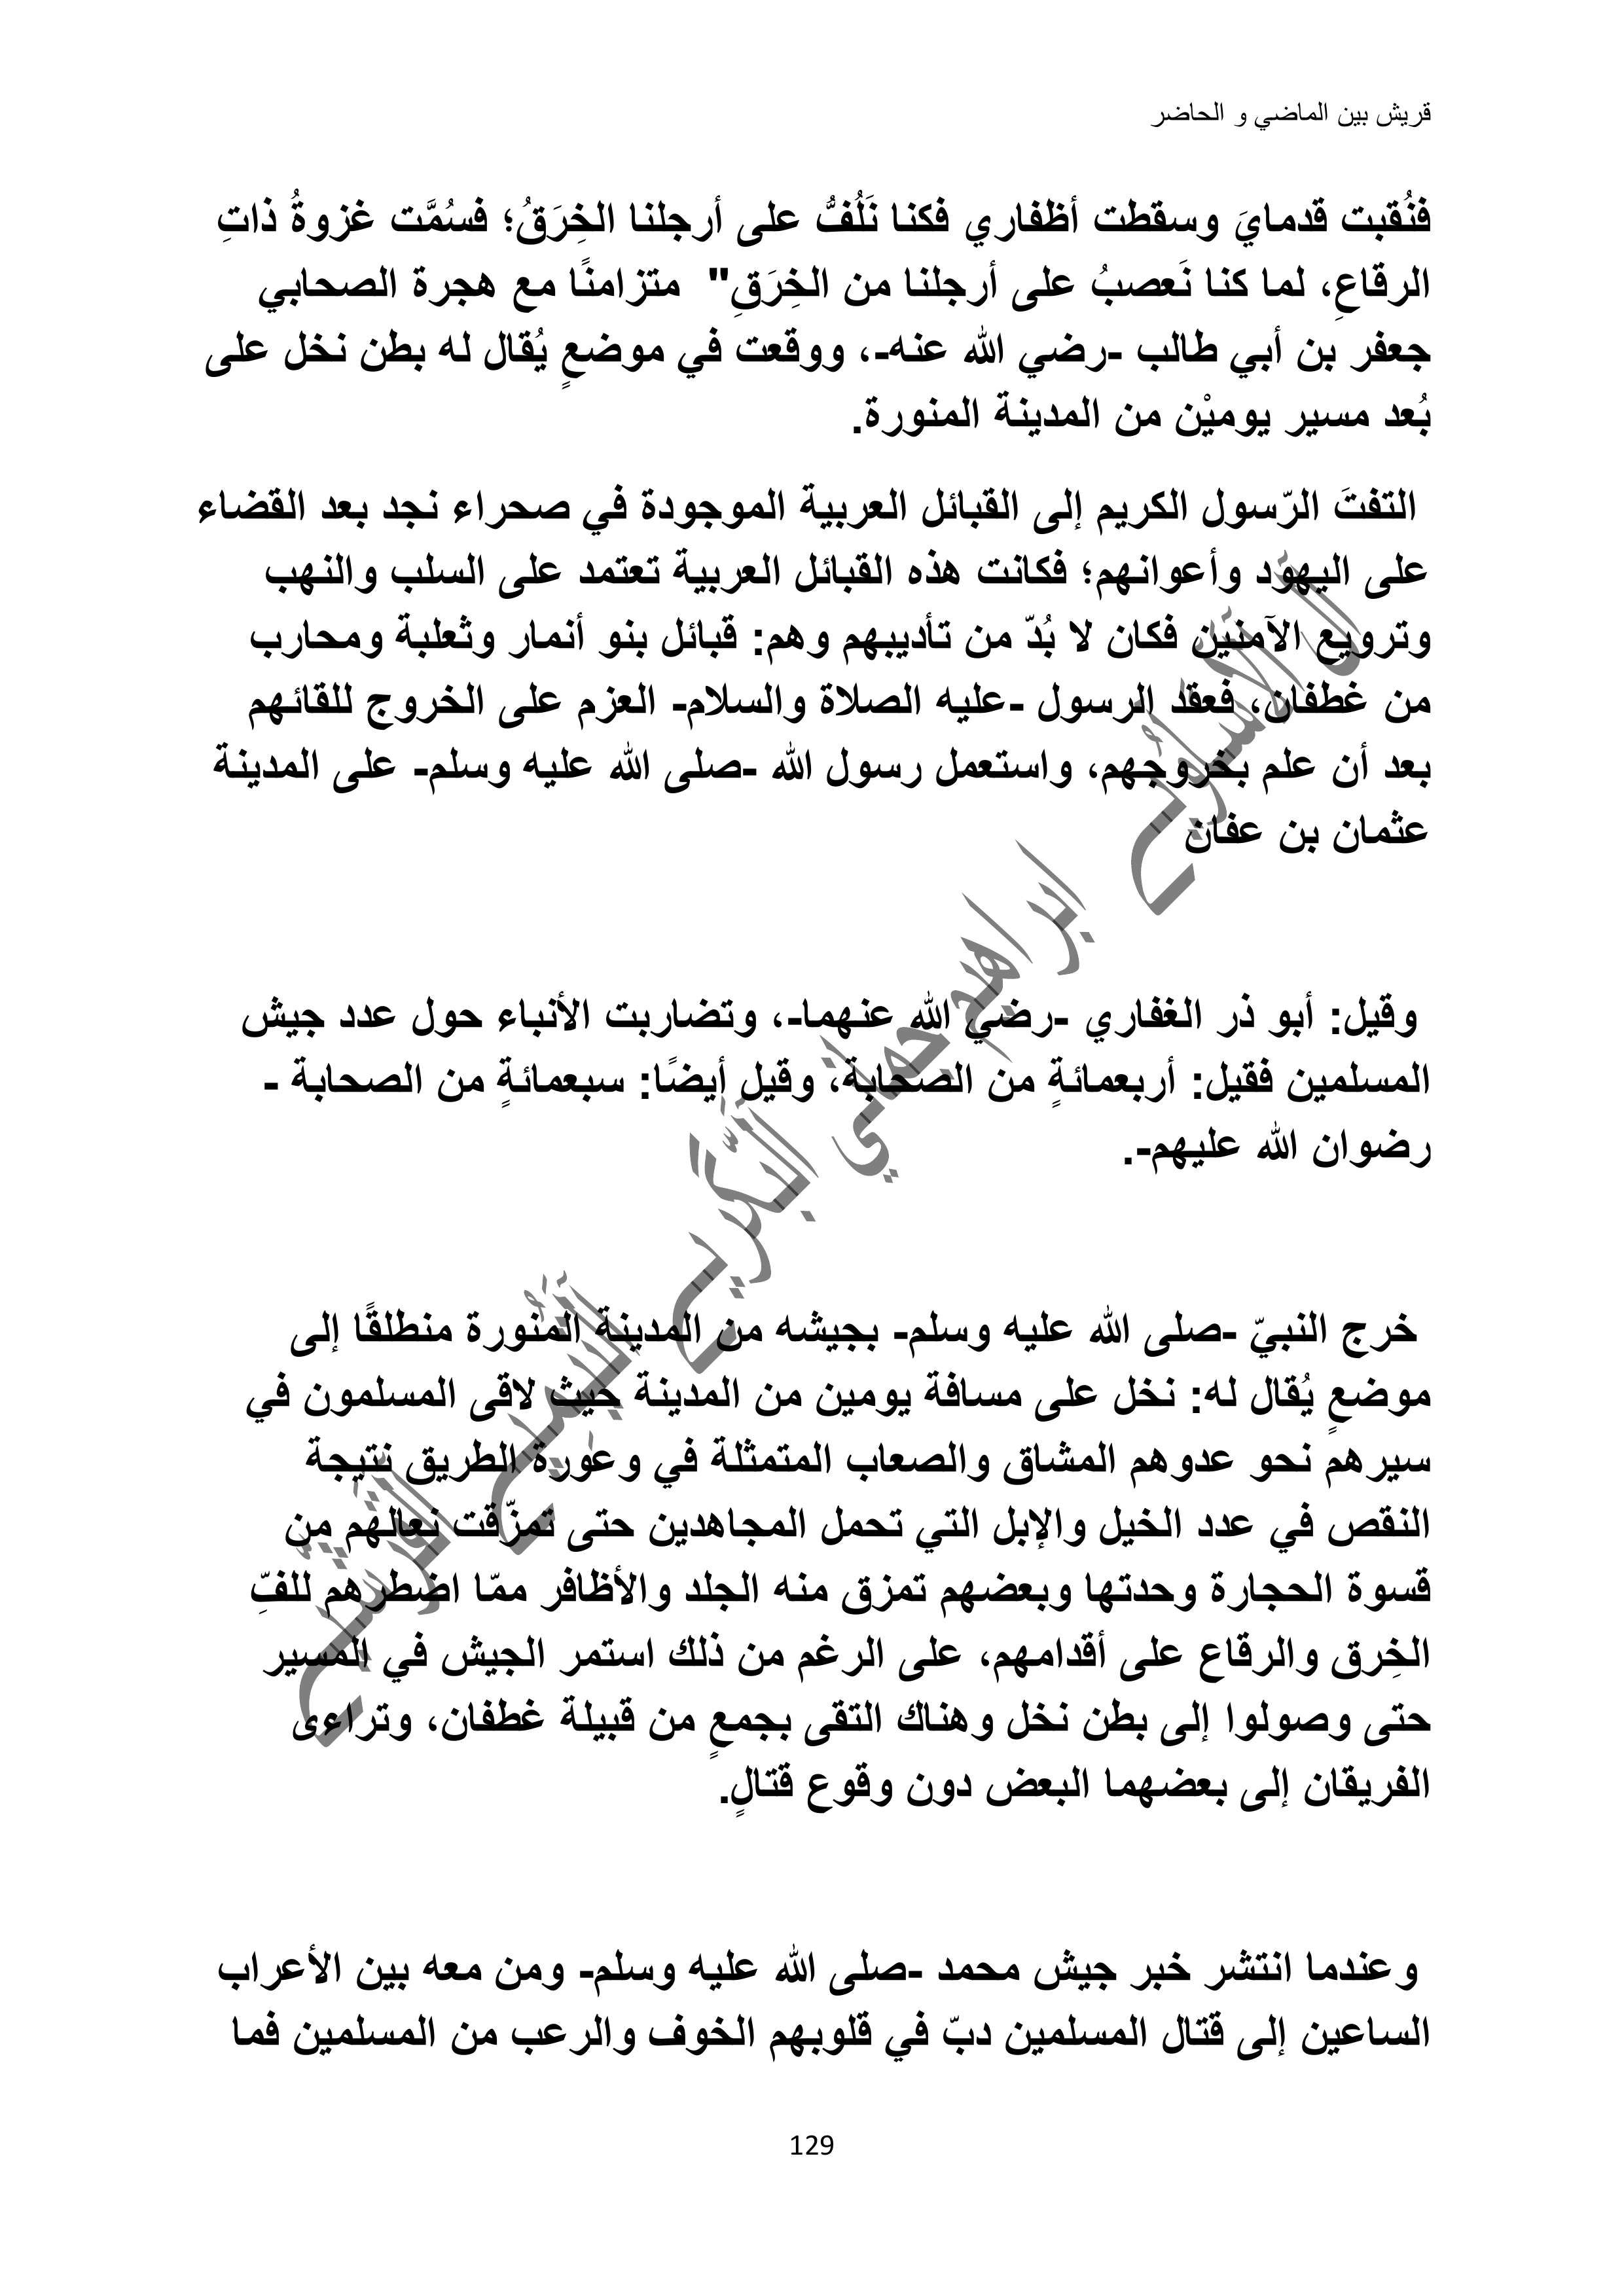 قريش بين الماضي و الحاضر
فنُقبت قدمايَ وسقطت أظفاري فكنا نَلُفُّ على أرجلنا الخِرَقُ؛ فسُمَّت غزوةُ ذاتِ
الرقاعِ، لما كنا نَعصبُ على أرجلنا من الخِرَقِ" متزامنًا مع هجرة الصحابي
جعفر بن أبي طالب -رضي الله عنه-، ووقعت في موضعٍ يُقال له بطن نخل على
بُعد مسير يوميْن من المدينة المنورة.
التفتَ الرّسول الكريم إلى القبائل العربية الموجودة في صحراء نجد بعد القضاء
على اليهود وأعوانهم؛ فكانت هذه القبائل العربية تعتمد على السلب والنهب
وترويع الآمنين فكان لا بُدّ من تأديبهم وهم: قبائل بنو أنمار وثعلبة ومحارب
من غطفان، فعقد الرسول -عليه الصلاة والسلام- العزم على الخروج للقائهم
بعد أن علم بخروجهم، واستعمل رسول الله -صلى الله عليه وسلم- على المدينة
عثمان بن عفان
وقيل: أبو ذر الغفاري -رضي الله عنهما-، وتضاربت الأنباء حول عدد جيش
المسلمين فقيل: أربعمائةٍ من الصحابة، وقيل أيضًا: سبعمائةٍ من الصحابة -
رضوان الله عليهم-.
خرج النبيّ -صلى الله عليه وسلم- بجيشه من المدينة المنورة منطلقًا إلى
موضعٍ يُقال له: نخل على مسافة يومين من المدينة حيث لاقى المسلمون في
سيرهم نحو عدوهم المشاق والصعاب المتمثلة في وعورة الطريق نتيجة
النقص في عدد الخيل والإبل التي تحمل المجاهدين حتى تمزّقت نعالهم من
قسوة الحجارة وحدتها وبعضهم تمزق منه الجلد والأظافر ممّا اضطرهم للفّ
الخِرق والرقاع على أقدامهم، على الرغم من ذلك استمر الجيش في المسير
حتى وصولوا إلى بطن نخل وهناك التقى بجمعٍ من قبيلة غطفان، وتراءى
الفريقان إلى بعضهما البعض دون وقوع قتالٍ.
وعندما انتشر خبر جيش محمد -صلى الله عليه وسلم- ومن معه بين الأعراب
الساعين إلى قتال المسلمين دبّ في قلوبهم الخوف والرعب من المسلمين فما
129